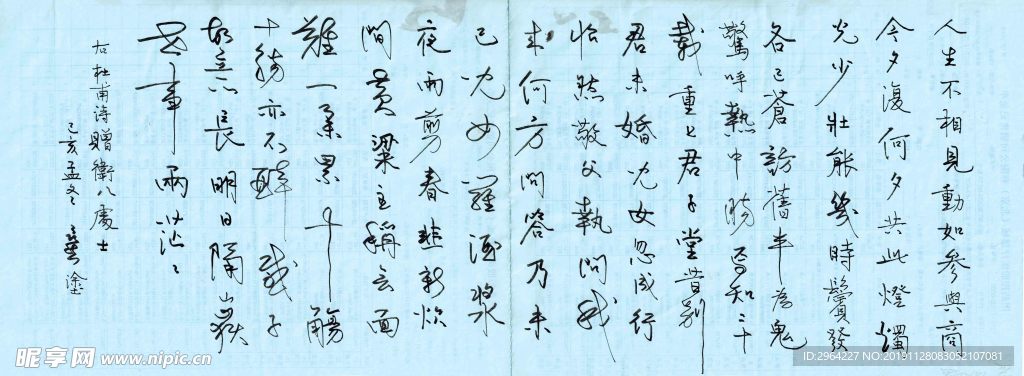 人生不相見動如參與商
今夕復何夕共此燈燭
光少壯能幾時鬢發
各已蒼訪舊半為鬼
驚呼熱中腸焉知二十
載重上君子堂昔別
君未婚兒女忽成行
怡然敬父執問我
來何方問答乃未
已兒女羅酒漿
夜雨剪春韭新炊
間黃粱主稱會面
難一舉累十觴
十觴亦不醉感子
故意長明日隔山嶽
世事兩茫々
右杜甫詩贈衛八處士
己亥孟冬 塗
昵享网 www.nipic.cn
ID:2964227 NO:20191128083052107081